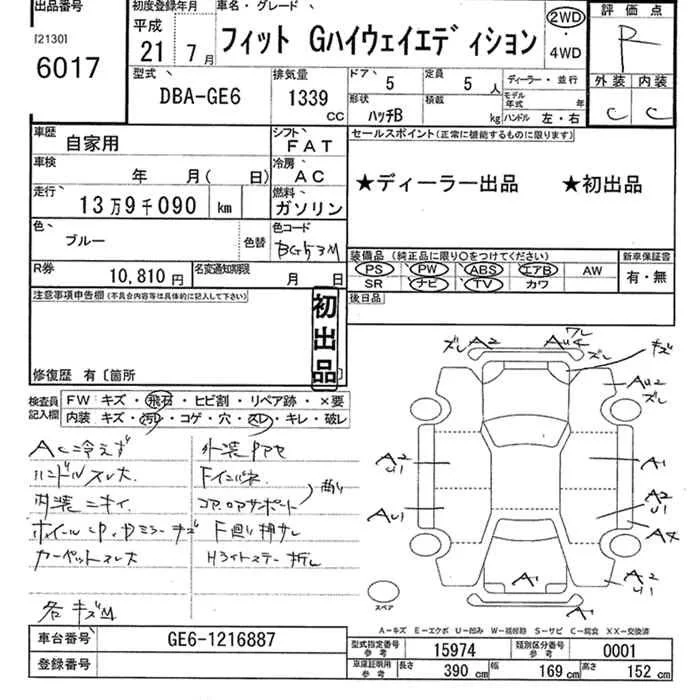 出品番号
[2130]
6017
初度登録年月
平成
21 7月
車名・グレード
フィット Gハイウェイエディション
2WD
4WD
評価点
R
外装 内装
C C
型式
DBA-GE6
排気量
1339
CC
ドア
5
定員
5 人
ディーラー・並行
形状
ハッチB
積載
kg
モデル年式
年
ハンドル 左・右
車歴
自家用
シフト
FAT
車検
年 月( 日)
冷房
AC
走行
13万9千090 km
燃料
ガソリン
色
ブルー
色替
色コード
BG53M
R券
10,810円
名変通知期限
月 日
セールスポイント(正常に機能するものに限ります)
★ディーラー出品 ★初出品
装備品(純正品に限り〇をつけてください)
PS PW ABS エアB AW
SR ナビ TV カワ
新車保証書
有・無
後日品
注意事項申告欄(不具合内容等は具体的に記入して下さい)
初出品
修復歴 有〔箇所
検査員記入欄
FW キズ・飛石・ヒビ割・リペア跡・×要
内装 キズ・汚れ・コゲ・穴・スレ・キレ・破レ
AC冷えず
ハンドルスレ大
内装ニオイ
カーペットスレ大
Fインパネ
コア.ロアサポート
曲り
F廻り押サレ
Hライトステー折レ
ズレ A2
ワレ
AU4
ズレ
キズ
AU2
ズレ
A2
U1
A1
AU1
A2
U1
A4
A1
A2
U1
A1
スペア
A-キズ E-エクボ U-凹み W-補修跡 S-サビ C-腐食 XX-交換済
車台番号
GE6-1216887
登録番号
型式指定番号
参考
15974
類別区分番号
参考
0001
車庫証明用
参考
長さ
390 cm
幅
169 cm
高さ
152 cm